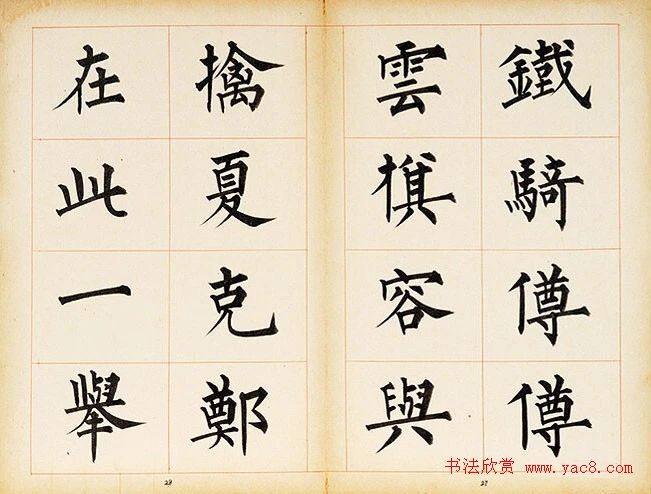 鐵騎僔僔
雲容與
擒夏克鄭
在此一舉
27
28
书法欣赏 www.yac8.com